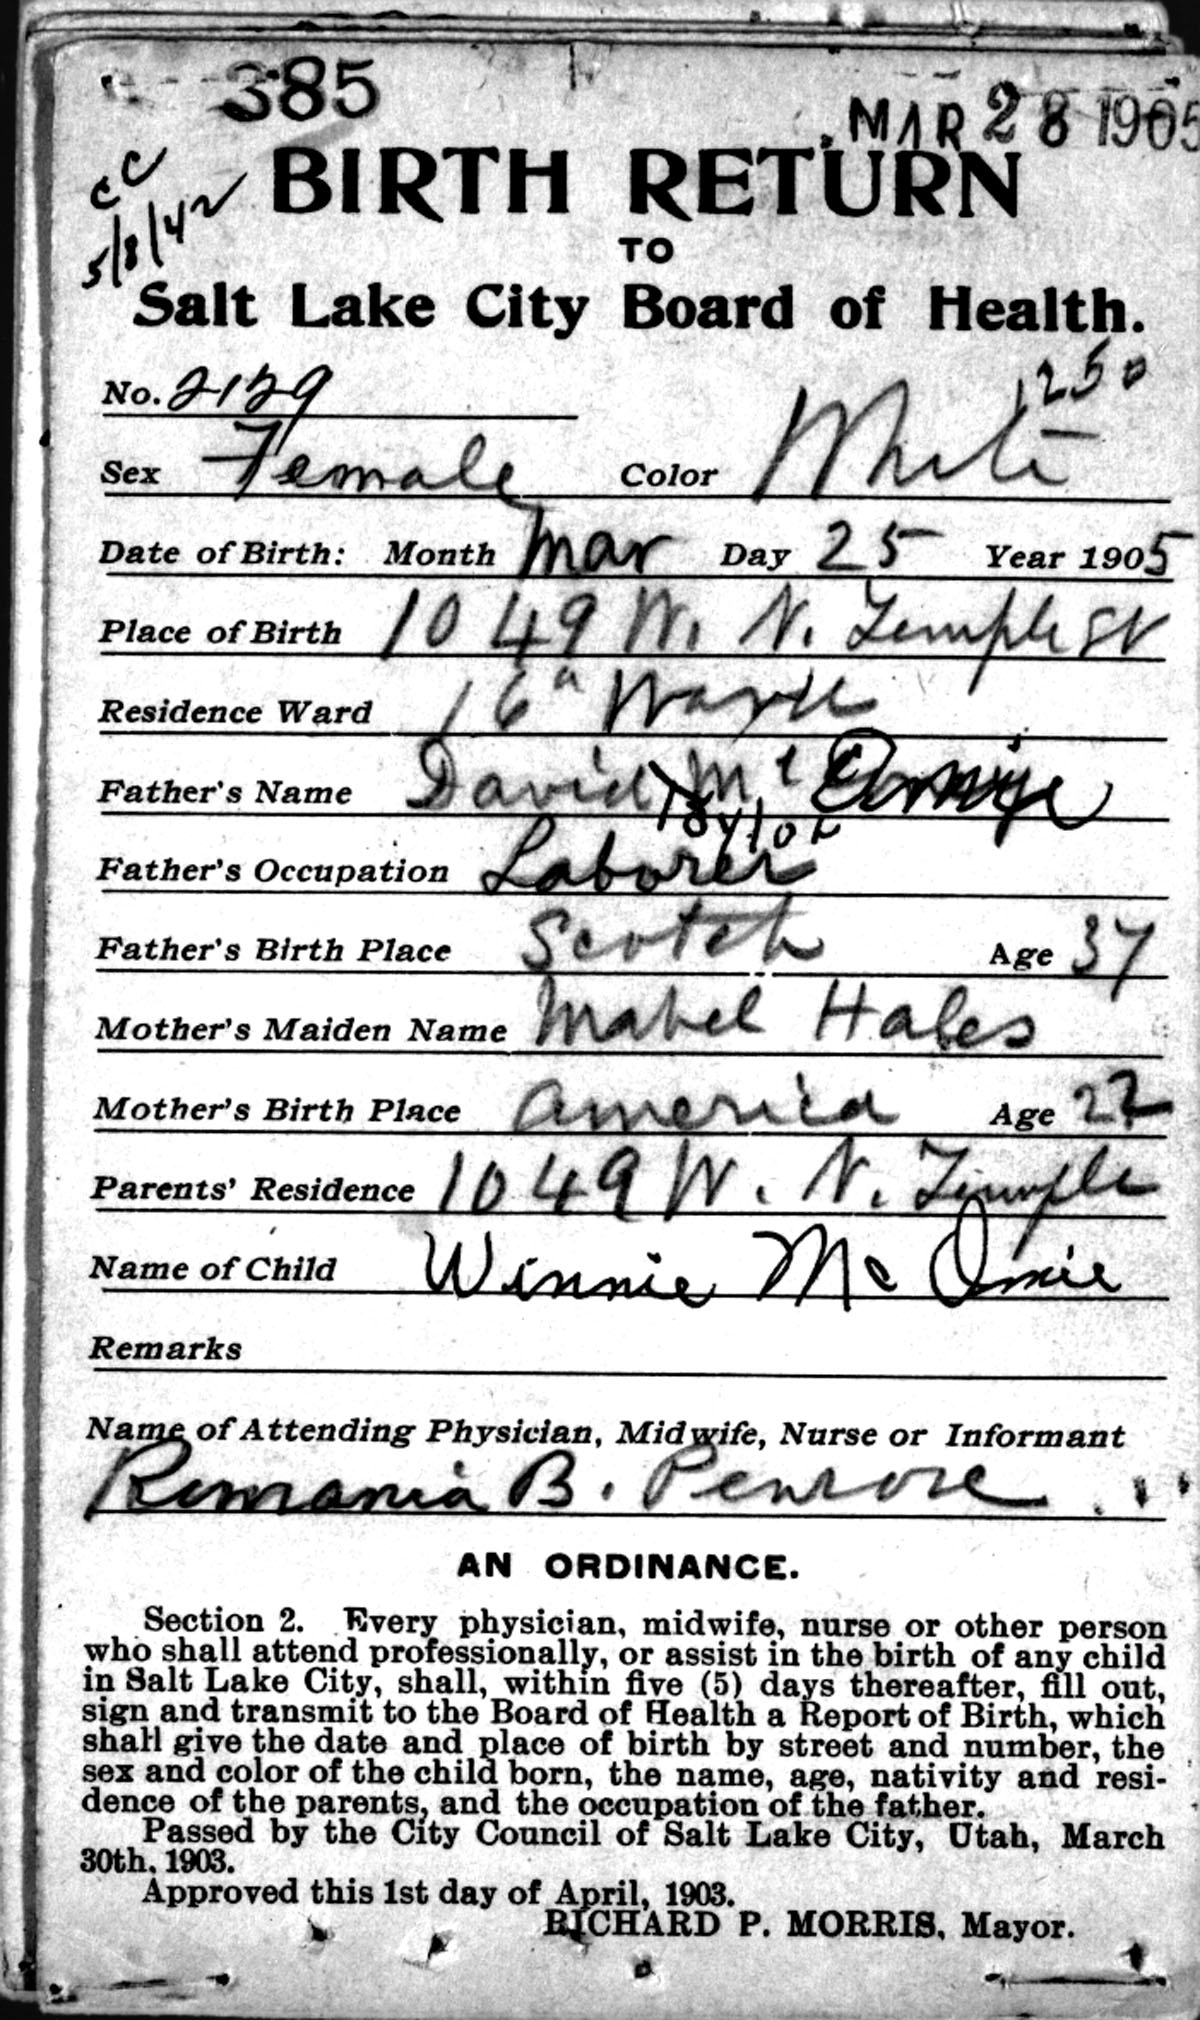 385
MAR 28 1905
cc
5/8/42
BIRTH RETURN
TO
Salt Lake City Board of Health.
1250
No. 2129
Sex Female Color White
Date of Birth: Month Mar Day 25 Year 1905
Place of Birth 1049 W. N. Temple St
Residence Ward 16" Ward
Father's Name David Mc Omie
Taylor
Father's Occupation Laborer
Father's Birth Place Scotch Age 37
Mother's Maiden Name Mabel Hales
Mother's Birth Place America Age 22
Parents' Residence 1049 W. N. Temple
Name of Child Winnie Mc Omie
Remarks
Name of Attending Physician, Midwife, Nurse or Informant
Romania B. Penrose
AN ORDINANCE.
Section 2. Every physician, midwife, nurse or other person
who shall attend professionally, or assist in the birth of any child
in Salt Lake City, shall, within five (5) days thereafter, fill out,
sign and transmit to the Board of Health a Report of Birth, which
shall give the date and place of birth by street and number, the
sex and color of the child born, the name, age, nativity and resi-
dence of the parents, and the occupation of the father.
Passed by the City Council of Salt Lake City, Utah, March
30th, 1903.
Approved this 1st day of April, 1903.
RICHARD P. MORRIS, Mayor.